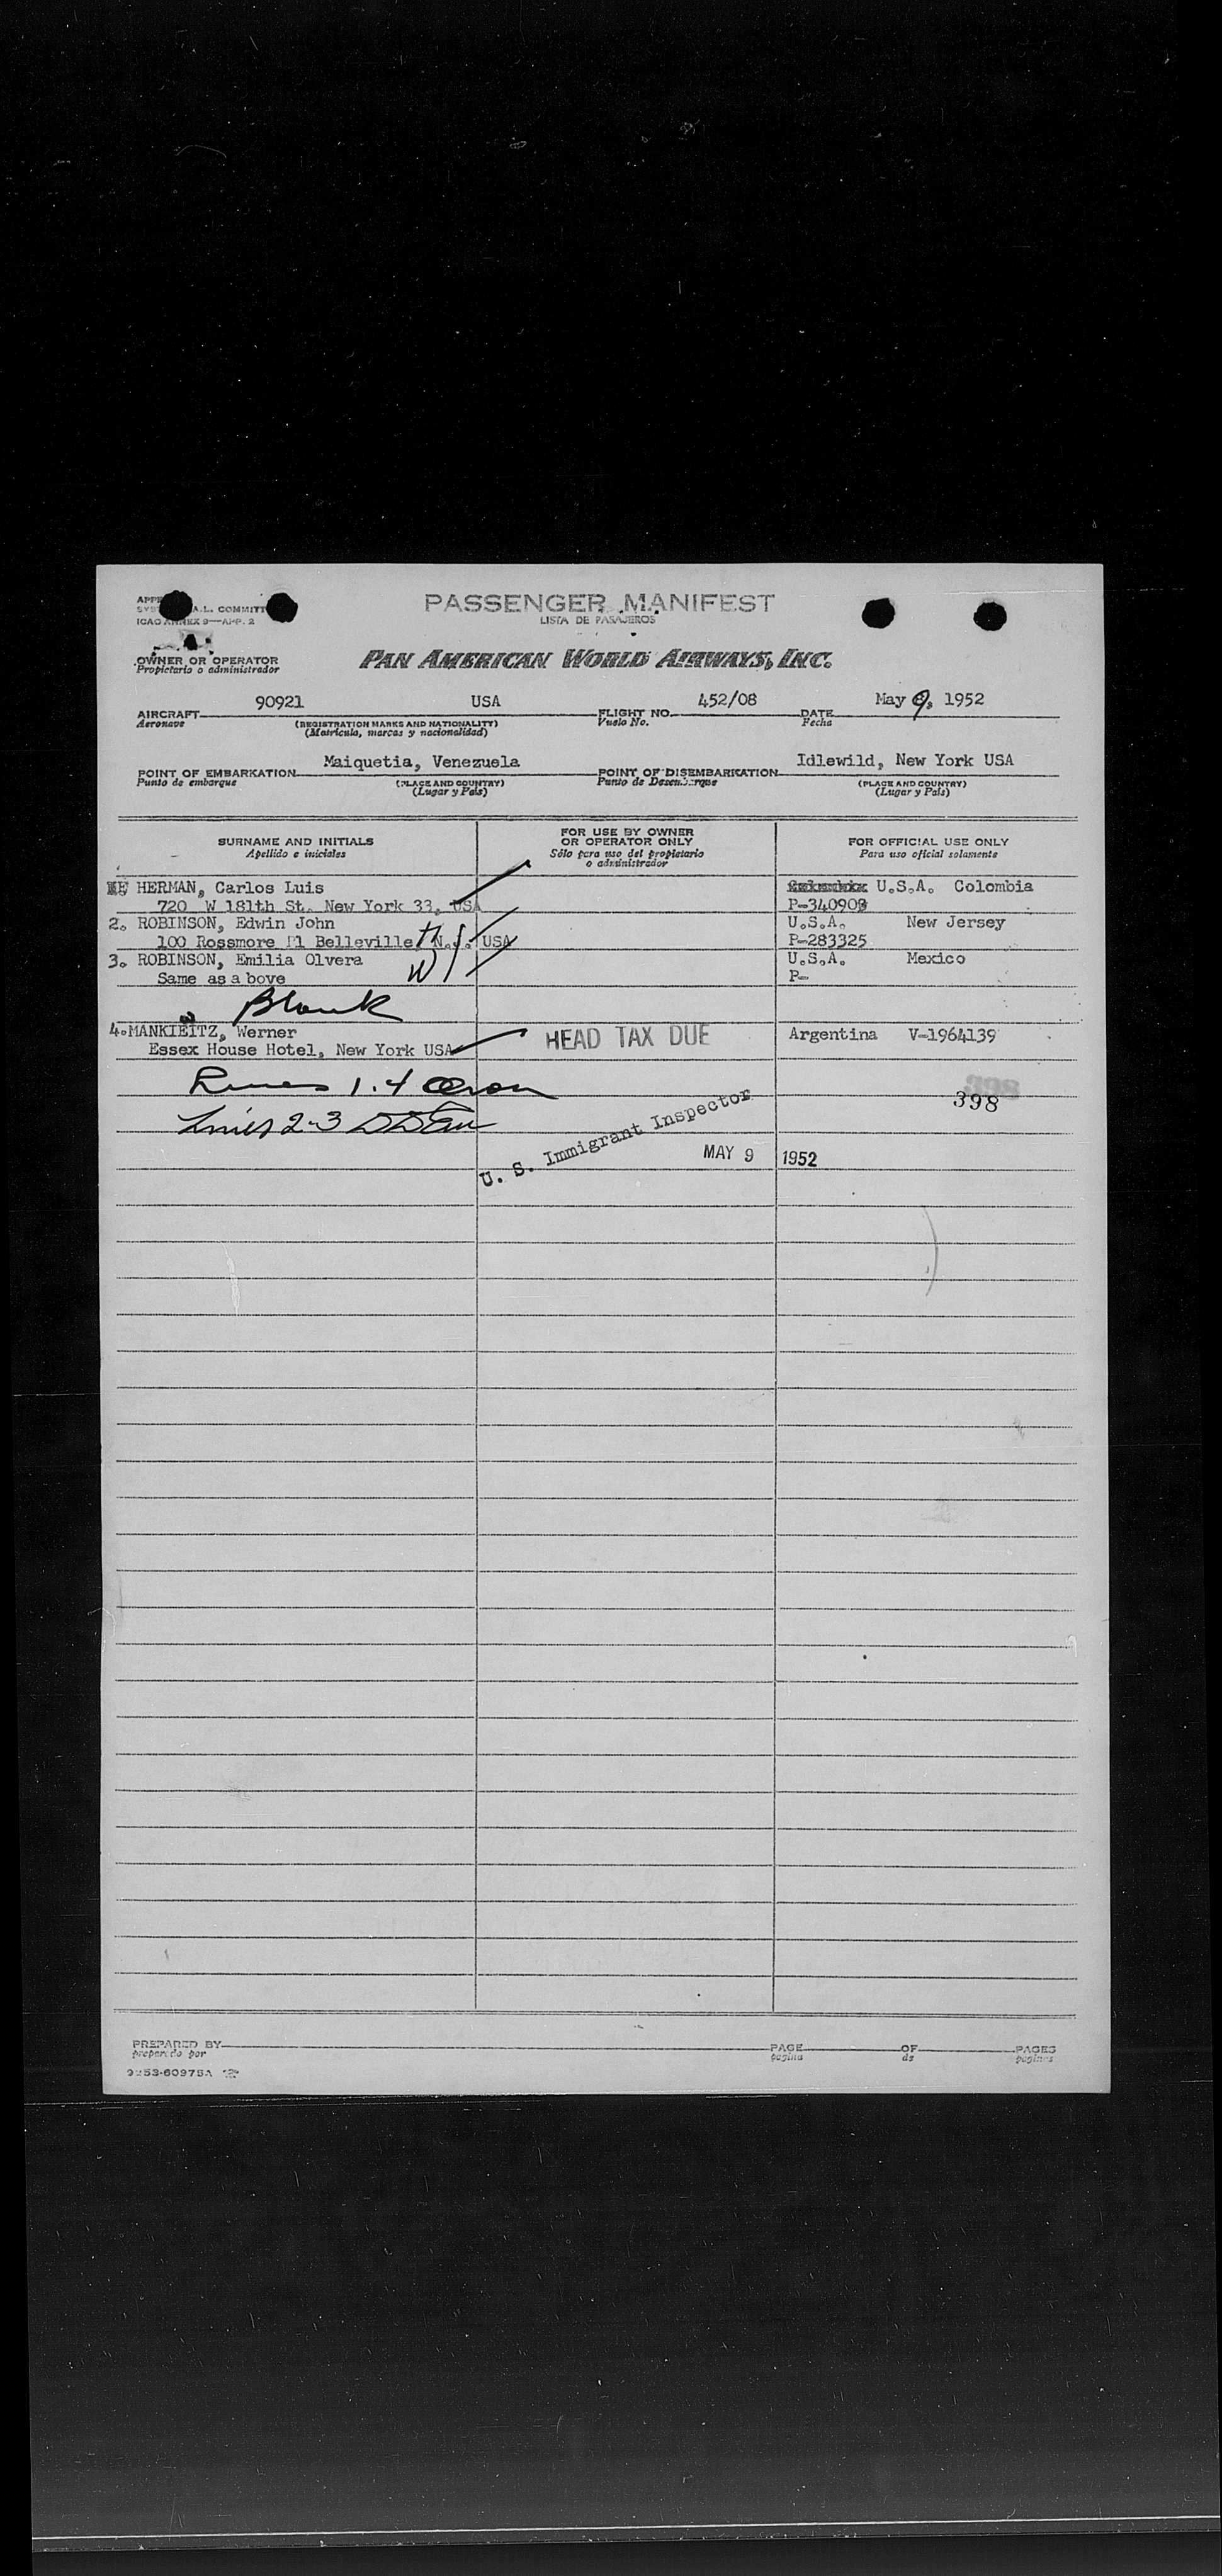 PASSENGER MANIFEST
LISTA DE PASAJEROS
A.L. COMMITT
ICAO ANNEX 9—APP. 2
OWNER OR OPERATOR
Propietario o administrador
PAN AMERICAN WORLD AIRWAYS, INC.
90921 USA 452/08 May 9, 1952
AIRCRAFT FLIGHT NO. DATE
Aeronave (REGISTRATION MARKS AND NATIONALITY) Vuelo No. Fecha
(Matrícula, marcas y nacionalidad)
Maiquetia, Venezuela Idlewild, New York USA
POINT OF EMBARKATION POINT OF DISEMBARKATION
Punto de embarque (PLACE AND COUNTRY) Punto de Desembarque (PLACE AND COUNTRY)
(Lugar y País) (Lugar y País)
SURNAME AND INITIALS FOR USE BY OWNER OR OPERATOR ONLY FOR OFFICIAL USE ONLY
Apellido e iniciales Sólo para uso del propietario o administrador Para uso oficial solamente
HERMAN, Carlos Luis U.S.A. Colombia
720 W 181th St. New York 33, USA P-340909
2. ROBINSON, Edwin John U.S.A. New Jersey
100 Rossmore Pl Belleville, N.J. USA P-283325
H
3. ROBINSON, Emilia Olvera U.S.A. Mexico
Same as a bove P-
W
Blank
4. MANKIEITZ, Werner HEAD TAX DUE Argentina V-1964139
w
Essex House Hotel, New York USA
1.4
398
2-3
U. S. Immigrant Inspector
MAY 9 1952
PREPARED BY PAGE OF PAGES
preparado por página de páginas